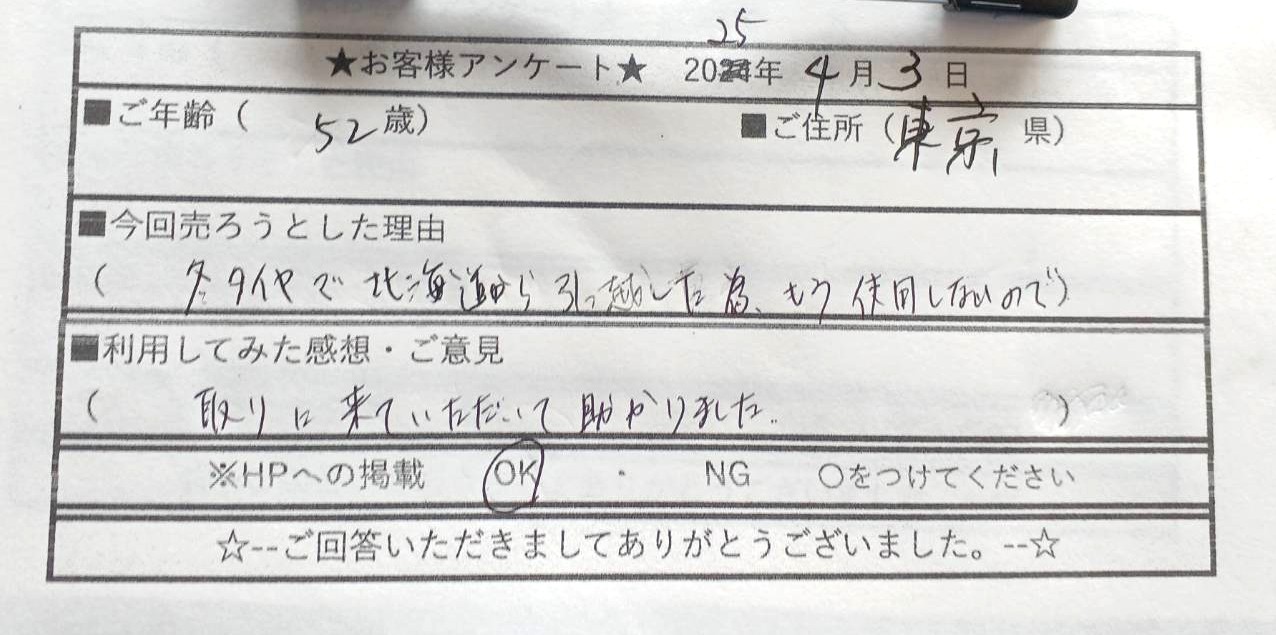 25
★お客様アンケート★ 20年 4月3日
■ご年齢( 52歳) ■ご住所(東京県)
■今回売ろうとした理由
( 冬タイヤで北海道から引っ越した為、もう使用しないので)
■利用してみた感想・ご意見
( 取りに来ていただいて助かりました。 )
※HPへの掲載 OK ・ NG ○をつけてください
☆--ご回答いただきましてありがとうございました。--☆